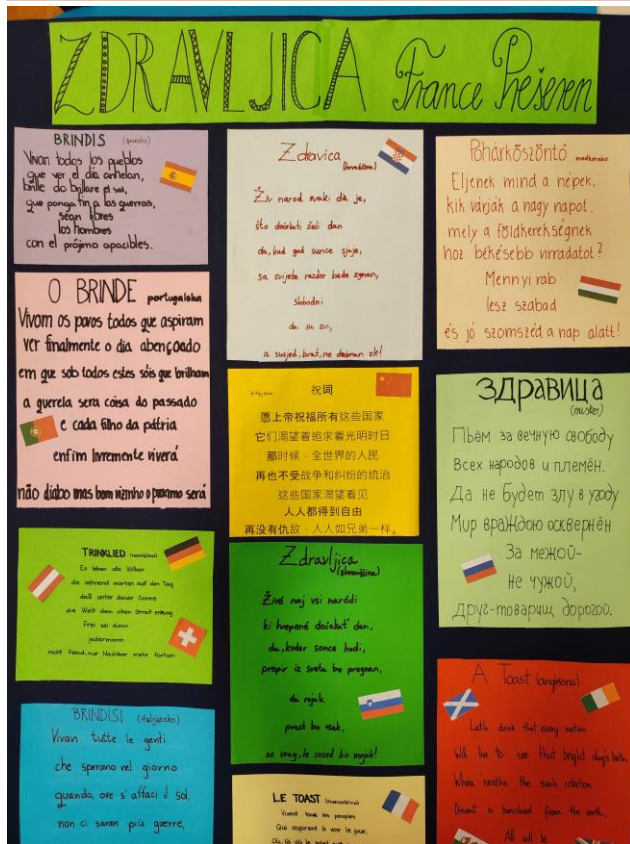 ZDRAVLJICA France Prešeren
BRINDIS (špansko)
Vivan todos los pueblos
que ver el día anhelan,
brille do brillare el sol,
que ponga fin a las guerras,
sean libres
los hombres
con el prójimo apacibles.
O BRINDE portugalsko
Vivam os povos todos que aspiram
ver finalmente o dia abençoado
em que sob todos estes sóis que brilham
a querela sera coisa do passado
e cada filho da pátria
enfim livremente viverá
não diabo mas bom vizinho o proximo será
TRINKLIED (nemščina)
Es leben alle Völker
die sehnend warten auf den Tag
daß unter dieser Sonne
die Welt dem alten Streit entsag
Frei sei dann
jedermann
nicht Feind, nur Nachbar mehr fortan
BRINDISI (italijansko)
Vivan tutte le genti
che sperano nel giorno
quando, ove s'affaci il sol,
non ci saran più guerre,
Zdravica
(hrvaščina)
Živ narod svaki da je,
što dočekati želi dan
da, kud god sunce sjaje,
sa svijeta razdor bude zgnan,
slobodni
da su svi,
a susjed, brat, ne dušman zli!
kitajsko 祝词
愿上帝祝福所有这些国家
它们渴望着追求着光明时日
那时候，全世界的人民
再也不受战争和纠纷的统治
这些国家渴望看见
人人都得到自由
再没有仇敌，人人如兄弟一样。
Zdravljica
(slovenščina)
Živé naj vsi naródi
ki hrepené dočakat' dan,
da, koder sonce hodi,
prepir iz sveta bo pregnan,
da rojak
prost bo vsak,
ne vrag, le sosed bo mejak!
LE TOAST (francoščina)
Vivent tous les peuples
Qui aspirent à voir le jour,
Où, là où le soleil
Pohárköszöntő madžarsko
Éljenek mind a népek,
kik várják a nagy napot,
mely a földkerekségnek
hoz békésebb virradatot?
Mennyi rab
lesz szabad
és jó szomszéd a nap alatt!
ЗДРАВИЦА
(rusko)
Пьём за вечную свободу
Всех народов и племён.
Да не будет злу в угоду
Мир враждою осквернён
За межой-
Не чужой,
Друг-товарищ дорогой.
A Toast (anglesčina)
Let's drink that every nation
Will live to see that bright day's birth
When 'neath the sun's rotation
Dissent is banished from the earth,
All will be